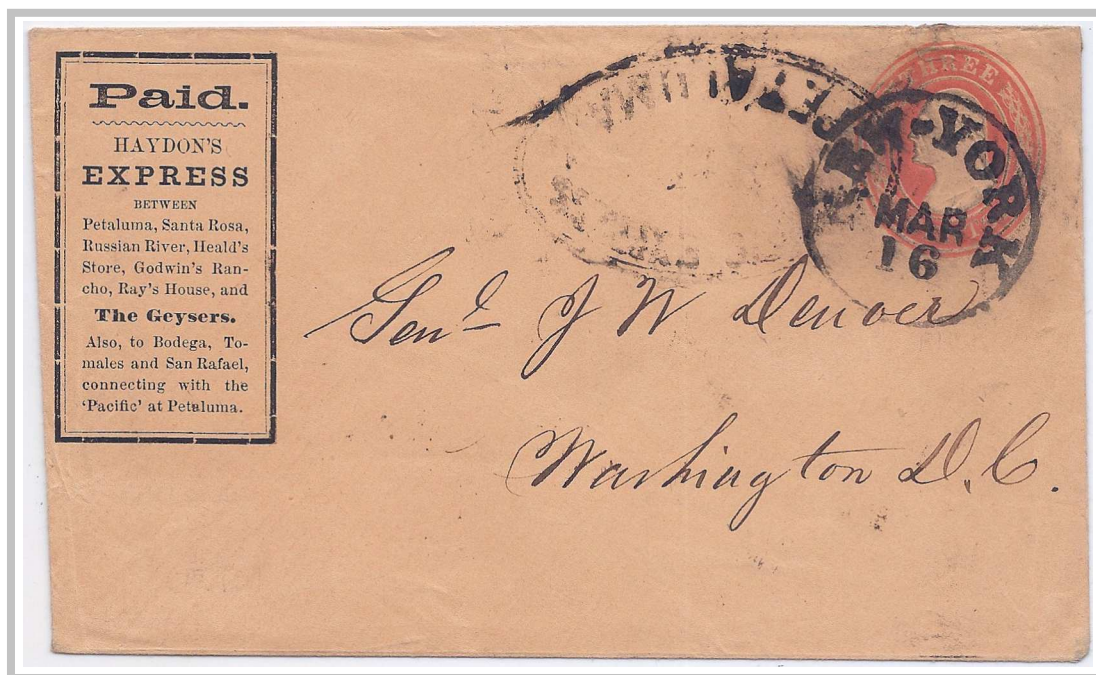 Paid.
HAYDON'S
EXPRESS
BETWEEN
Petaluma, Santa Rosa,
Russian River, Heald's
Store, Godwin's Ran-
cho, Ray's House, and
The Geysers.
Also, to Bodega, To-
males and San Rafael,
connecting with the
'Pacific' at Petaluma.
PETALUMA
THREE
NEW-YORK
MAR
16
Genl J W Denver
Washington D.C.